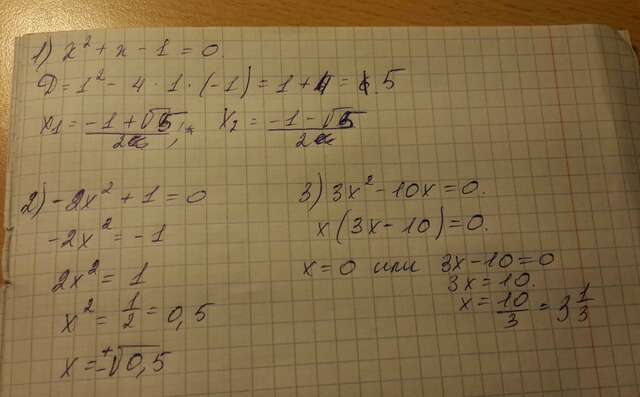 1) x² + x - 1 = 0.
D = 1² - 4 · 1 · (-1) = 1 + 4 = 5
x₁ = (-1 + √5)/2; x₂ = (-1 - √5)/2
2) -2x² + 1 = 0
-2x² = -1
2x² = 1
x² = 1/2 = 0,5
x = ±√0,5
3) 3x² - 10x = 0.
x(3x - 10) = 0.
x = 0 или 3x - 10 = 0
3x = 10.
x = 10/3 = 3 1/3